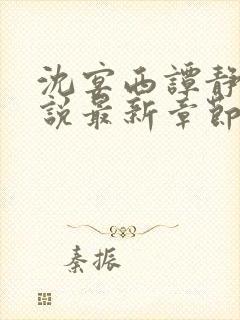 沈宴西譚靜
說最新章節
秦振